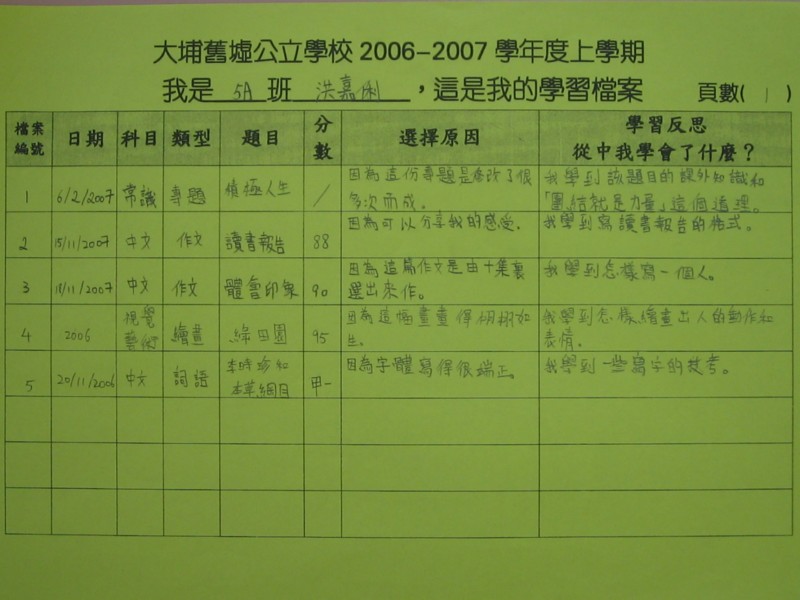 大埔舊墟公立學校 2006-2007 學年度上學期
我是 5A 班 洪嘉俐 ，這是我的學習檔案 頁數( 1 )
檔案編號 日期 科目 類型 題目 分數 選擇原因 學習反思 從中我學會了什麼？
1 6/2/2007 常識 專題 積極人生 / 因為這份專題是修改了很多次而成。 我學到該題目的課外知識和「團結就是力量」這個道理。
2 15/11/2007 中文 作文 讀書報告 88 因為可以分享我的感受。 我學到寫讀書報告的格式。
3 18/11/2007 中文 作文 體會印象 90 因為這篇作文是由十集裏選出來作。 我學到怎樣寫一個人。
4 2006 視覺藝術 繪畫 綠田園 95 因為這幅畫畫得栩栩如生。 我學到怎樣繪畫出人的動作和表情。
5 20/11/2006 中文 詞語 李時珍和本草綱目 甲- 因為字體寫得很端正。 我學到一些寫字的技考。